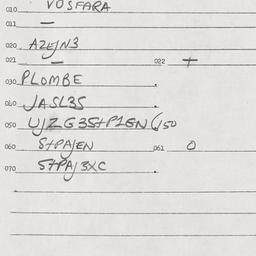 010 VOSFARA
011 —
020 AZEJN3
021 — 022 +
030 PLOMBE .
040 JASL3S
050 UJZG3S+P1EN 6/50
060 S+PAJEN 061 0
070 S+PAJ3XC .